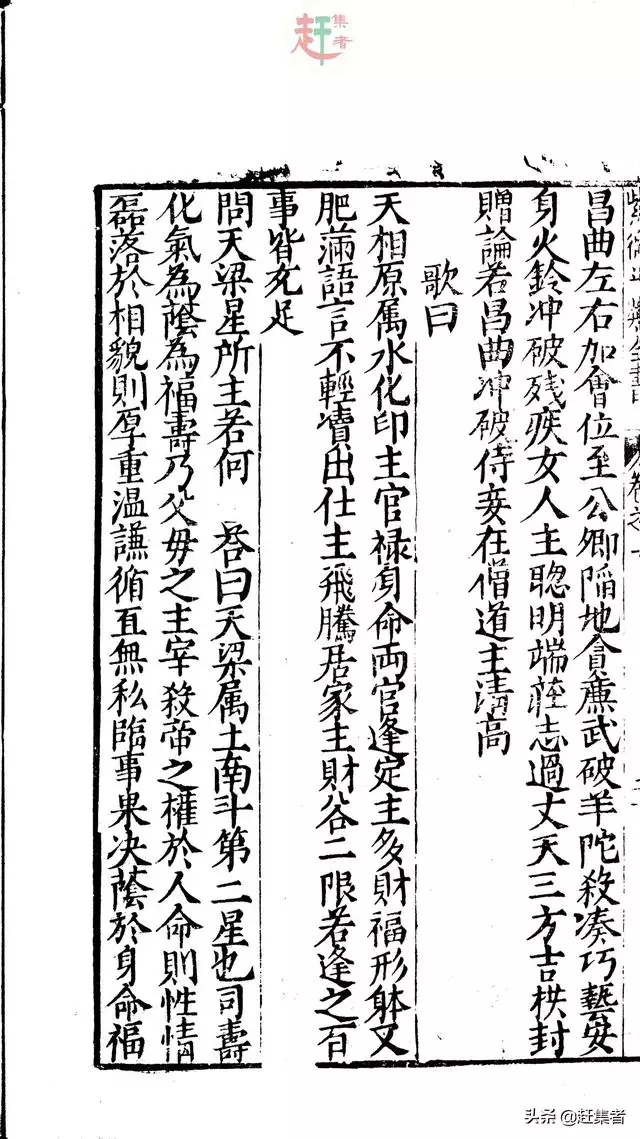 赶集者
紫微斗數全書 卷之
昌曲左右加會位至公卿陷地貪廉武破羊陀殺凑巧藝安
身火鈴冲破残疾女人主聰明端莊志過丈夫三方吉拱封
贈論若昌曲冲破侍妾在僧道主清高
歌曰
天相原属水化印主官禄身命两宫逢定主多財福形躰又
肥滿語言不輕瀆出仕主飛騰居家主財谷二限若逢之百
事皆充足
問天梁星所主若何 答曰天梁属土南斗第二星也司壽
化氣為蔭為福壽乃父母之主宰殺帝之權於人命則性情
磊落於相貌則厚重温謙循直無私臨事果决蔭於身命福
头条 @赶集者